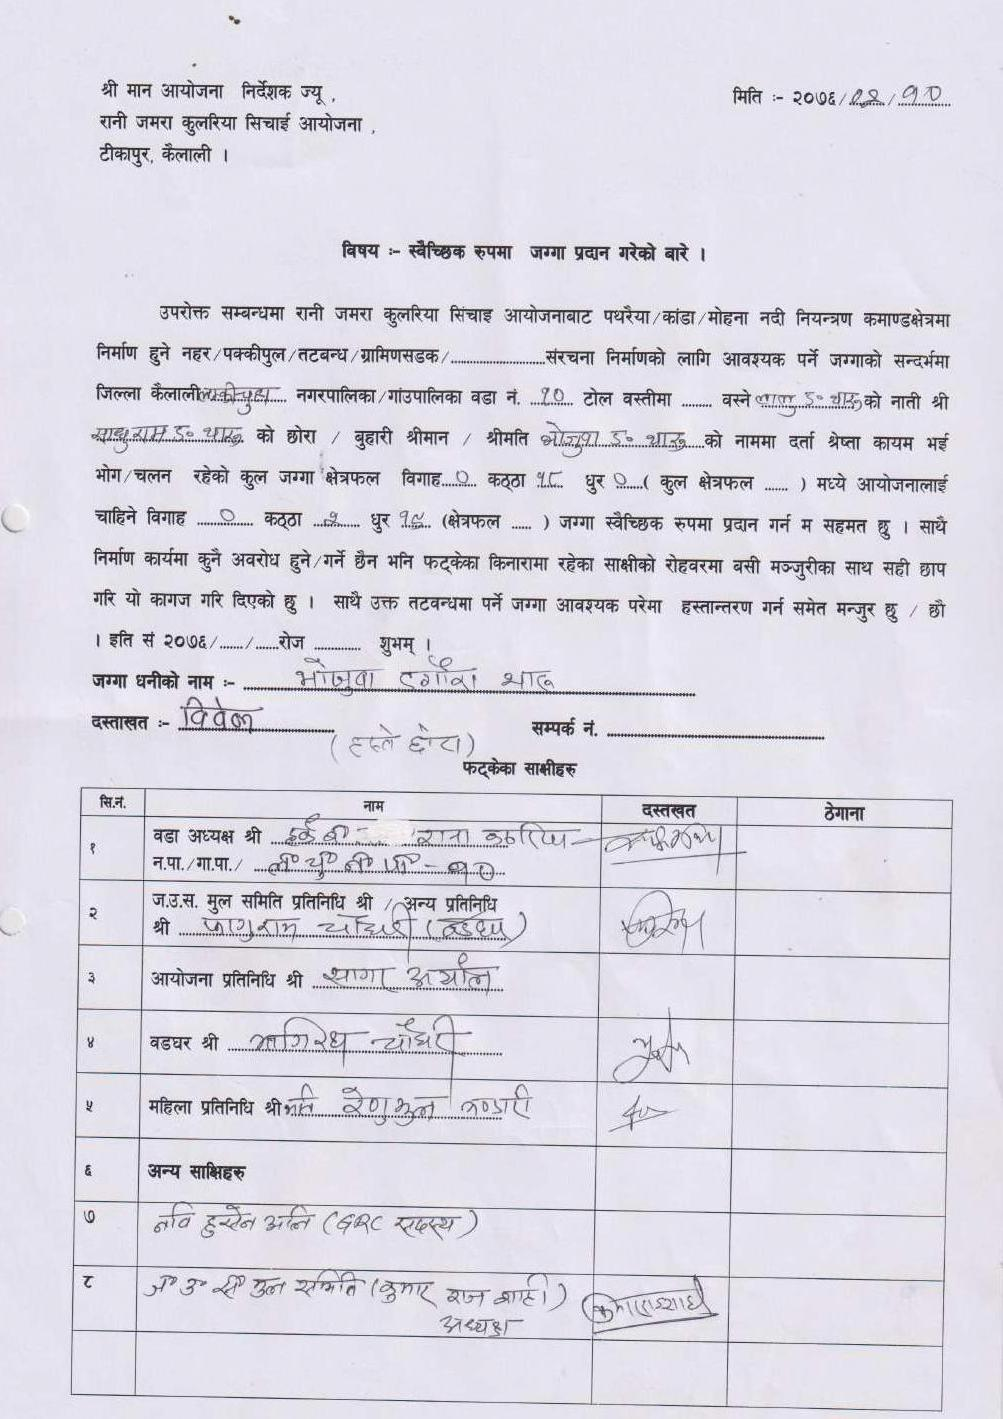 श्री मान आयोजना निर्देशक ज्यू ,
मिति :- २०७६/०२/१०
रानी जमरा कुलरिया सिचाई आयोजना ,
टीकापुर, कैलाली ।
विषय :- स्वैच्छिक रुपमा जग्गा प्रदान गरेको बारे ।
उपरोक्त सम्बन्धमा रानी जमरा कुलरिया सिंचाइ आयोजनाबाट पथरैया/कांडा/मोहना नदी नियन्त्रण कमाण्डक्षेत्रमा
निर्माण हुने नहर/पक्कीपुल/तटबन्ध/ग्रामिणसडक/....................संरचना निर्माणको लागि आवश्यक पर्ने जग्गाको सन्दर्भमा
जिल्ला कैलाली नगरपालिका/गांउपालिका वडा नं. १० टोल वस्तीमा ........ वस्ने लालु ड० थारू को नाती श्री
साधुराम ड० थारू को छोरा / बुहारी श्रीमान / श्रीमति भोजुवा ड० थारू को नाममा दर्ता श्रेष्ता कायम भई
भोग/चलन रहेको कुल जग्गा क्षेत्रफल विगाह ० कठ्ठा १८ धुर ० ( कुल क्षेत्रफल ...... ) मध्ये आयोजनालाई
चाहिने विगाह ० कठ्ठा धुर १९ (क्षेत्रफल ..... ) जग्गा स्वैच्छिक रुपमा प्रदान गर्न म सहमत छु । साथै
निर्माण कार्यमा कुनै अवरोध हुने/गर्ने छैन भनि फट्केका किनारामा रहेका साक्षीको रोहवरमा वसी मञ्जुरीका साथ सही छाप
गरि यो कागज गरि दिएको छु । साथै उक्त तटवन्धमा पर्ने जग्गा आवश्यक परेमा हस्तान्तरण गर्न समेत मन्जुर छु / छौ
। इति सं २०७६/....../......रोज ............ शुभम् ।
जग्गा धनीको नाम :- भोजुवा डगौरा थारू
दस्ताखत :- विवेक
सम्पर्क नं. ........................................
(हस्ते छोरा)
फट्केका साक्षीहरु
सि.नं. नाम दस्तखत ठेगाना
१ वडा अध्यक्ष श्री राना
न.पा./गा.पा./ ल० चु० न० पा० - १०
२ ज.उ.स. मुल समिति प्रतिनिधि श्री / अन्य प्रतिनिधि
श्री फागुराम चौधरी
३ आयोजना प्रतिनिधि श्री सागर अर्याल
४ वडघर श्री भागिरथ चौधरी
५ महिला प्रतिनिधि श्रीमति भण्डारी
६ अन्य साक्षिहरु
७ नवि हुसेन अलि (GRC सदस्य)
८ ज० उ० स० मुल समिति (कुमार राज शाही)
अध्यक्ष